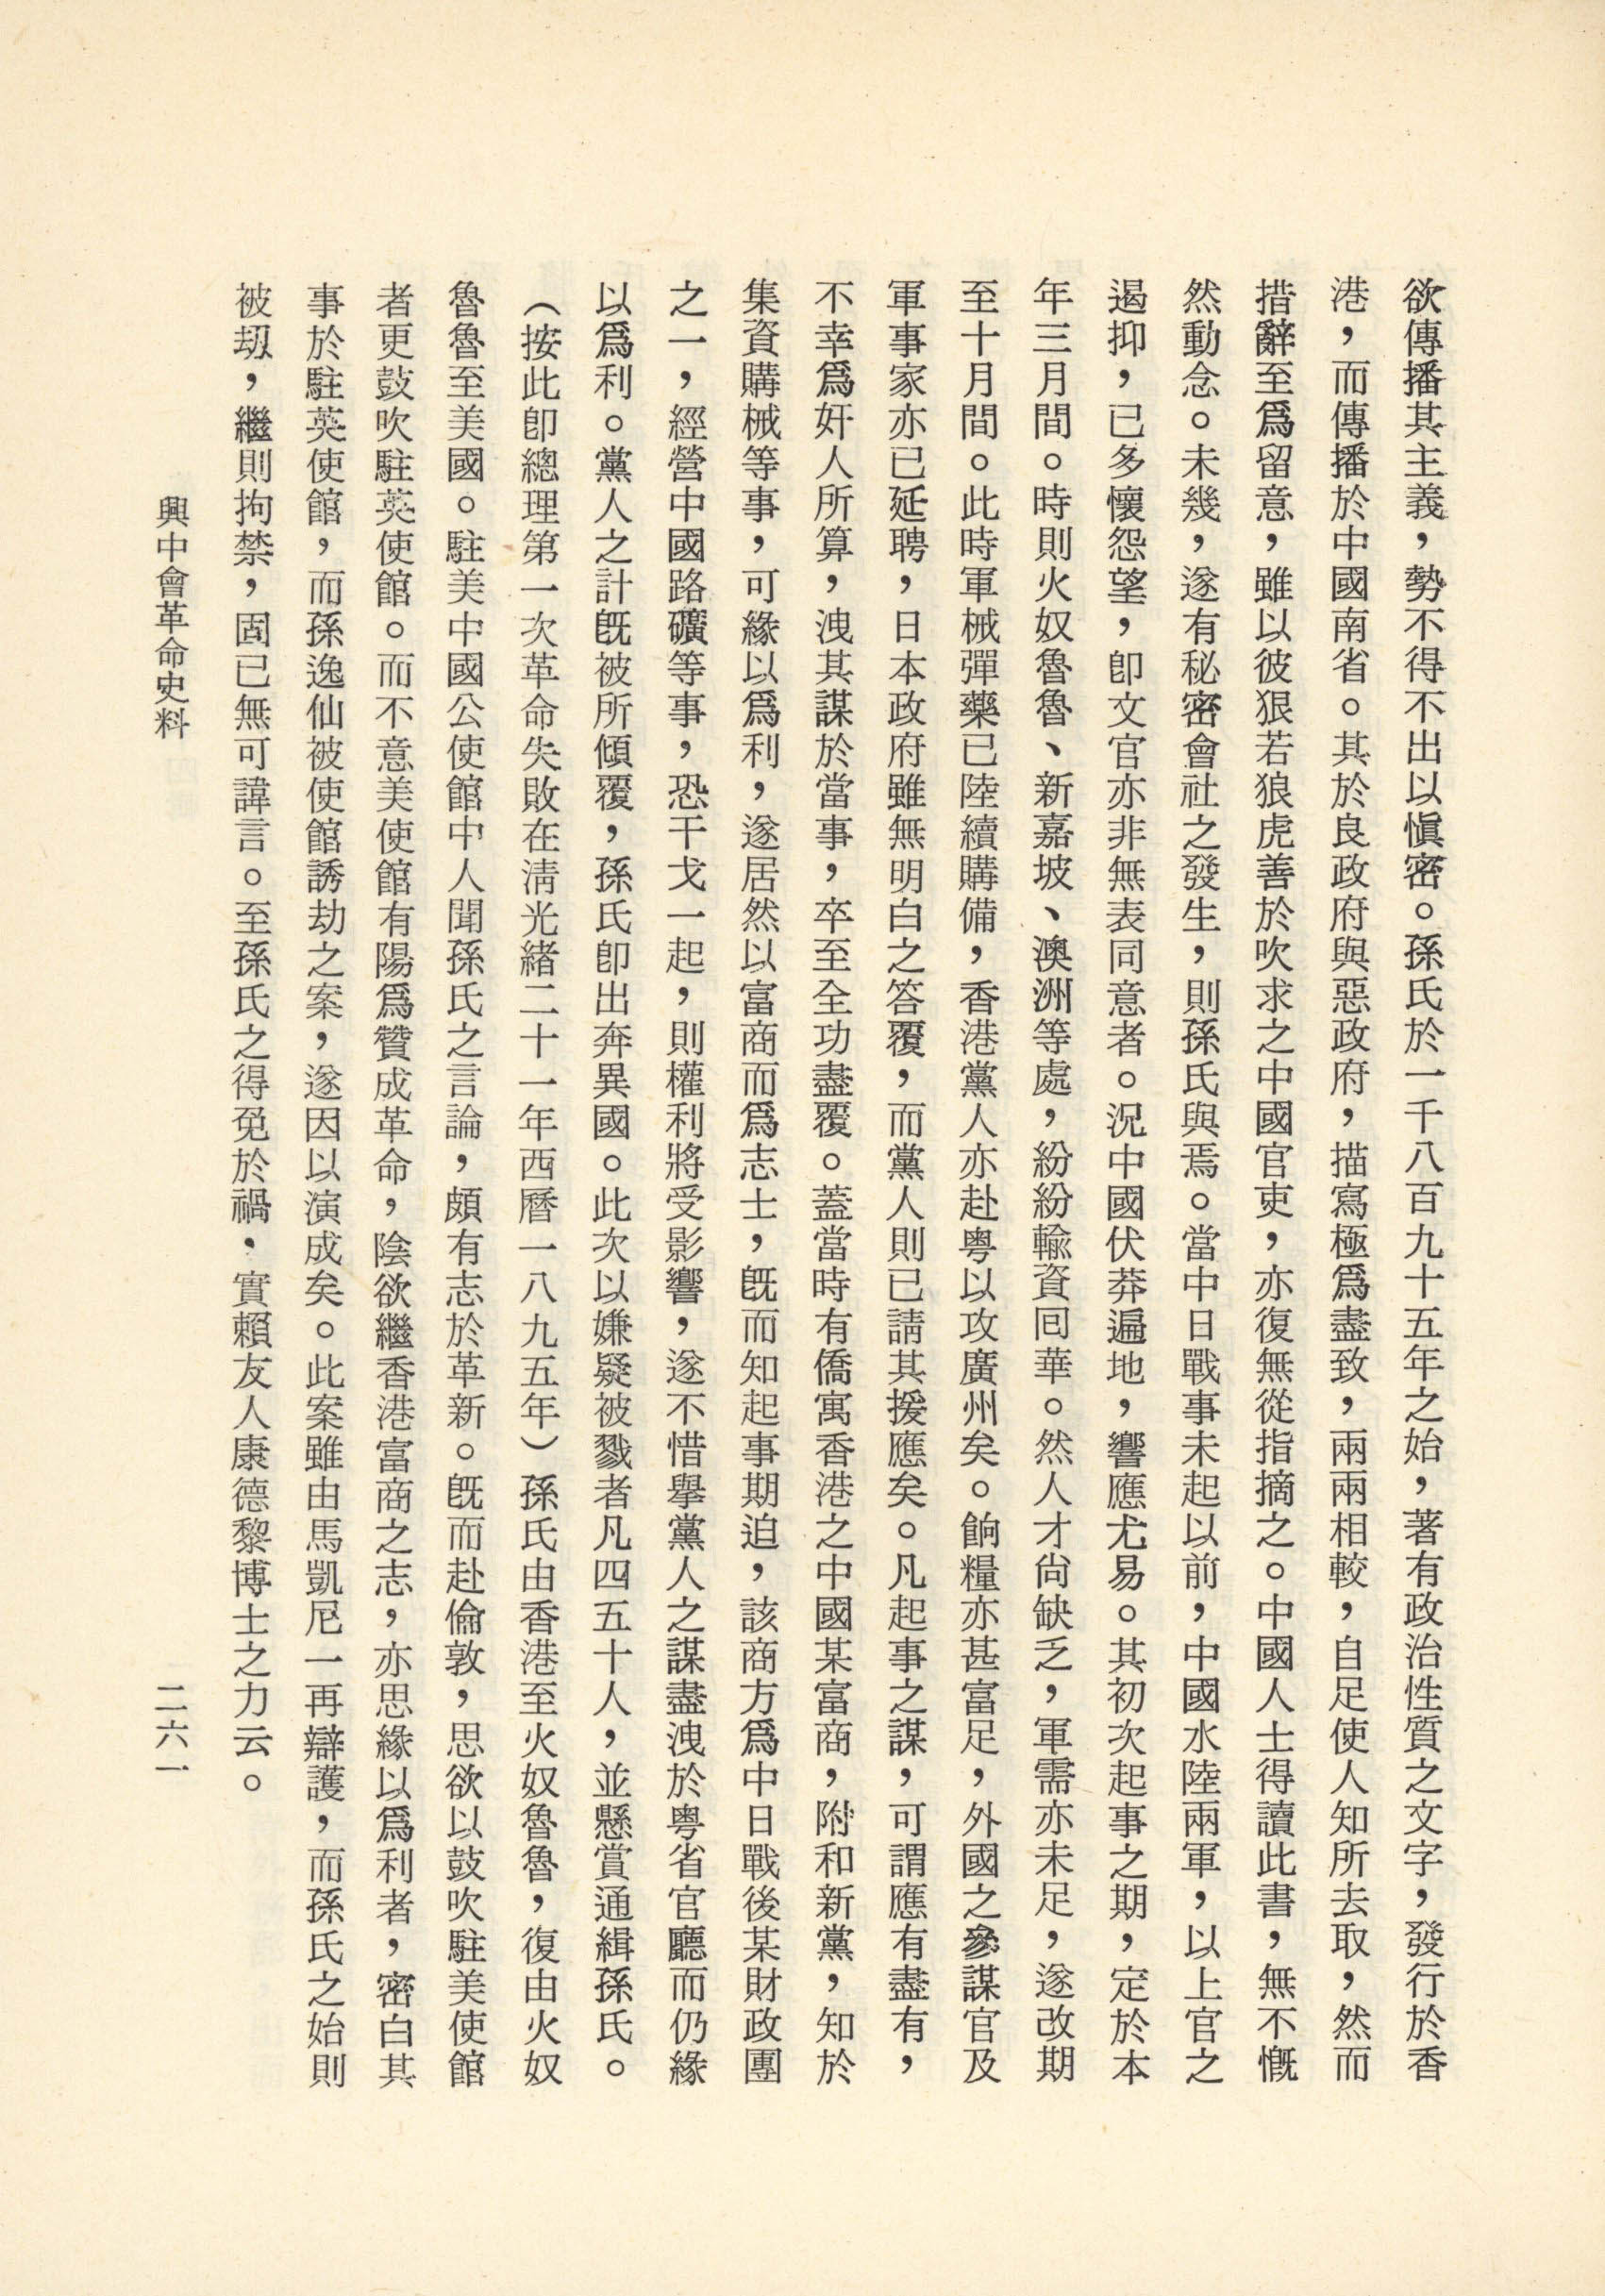 欲傳播其主義，勢不得不出以愼密。孫氏於一千八百九十五年之始，著有政治性質之文字，發行於香
港，而傳播於中國南省。其於良政府與惡政府，描寫極爲盡致，兩兩相較，自足使人知所去取，然而
措辭至爲留意，雖以彼狠若狼虎善於吹求之中國官吏，亦復無從指摘之。中國人士得讀此書，無不慨
然動念。未幾，遂有秘密會社之發生，則孫氏與焉。當中日戰事未起以前，中國水陸兩軍，以上官之
遏抑，已多懷怨望，卽文官亦非無表同意者。況中國伏莽遍地，響應尤易。其初次起事之期，定於本
年三月間。時則火奴魯魯、新嘉坡、澳洲等處，紛紛輸資囘華。然人才尙缺乏，軍需亦未足，遂改期
至十月間。此時軍械彈藥已陸續購備，香港黨人亦赴粤以攻廣州矣。餉糧亦甚富足，外國之參謀官及
軍事家亦已延聘，日本政府雖無明白之答覆，而黨人則已請其援應矣。凡起事之謀，可謂應有盡有，
不幸爲奸人所算，洩其謀於當事，卒至全功盡覆。蓋當時有僑寓香港之中國某富商，附和新黨，知於
集資購械等事，可緣以爲利，遂居然以富商而爲志士，旣而知起事期迫，該商方爲中日戰後某財政團
之一，經營中國路礦等事，恐干戈一起，則權利將受影響，遂不惜舉黨人之謀盡洩於粤省官廳而仍緣
以爲利。黨人之計旣被所傾覆，孫氏卽出奔異國。此次以嫌疑被戮者凡四五十人，並懸賞通緝孫氏。
（按此卽總理第一次革命失敗在淸光緒二十一年西曆一八九五年）孫氏由香港至火奴魯魯，復由火奴
魯魯至美國。駐美中國公使館中人聞孫氏之言論，頗有志於革新。旣而赴倫敦，思欲以鼓吹駐美使館
者更鼓吹駐英使館。而不意美使館有陽爲贊成革命，陰欲繼香港富商之志，亦思緣以爲利者，密白其
事於駐英使館，而孫逸仙被使館誘劫之案，遂因以演成矣。此案雖由馬凱尼一再辯護，而孫氏之始則
被刼，繼則拘禁，固已無可諱言。至孫氏之得免於禍，實賴友人康德黎博士之力云。
興中會革命史料
二六一